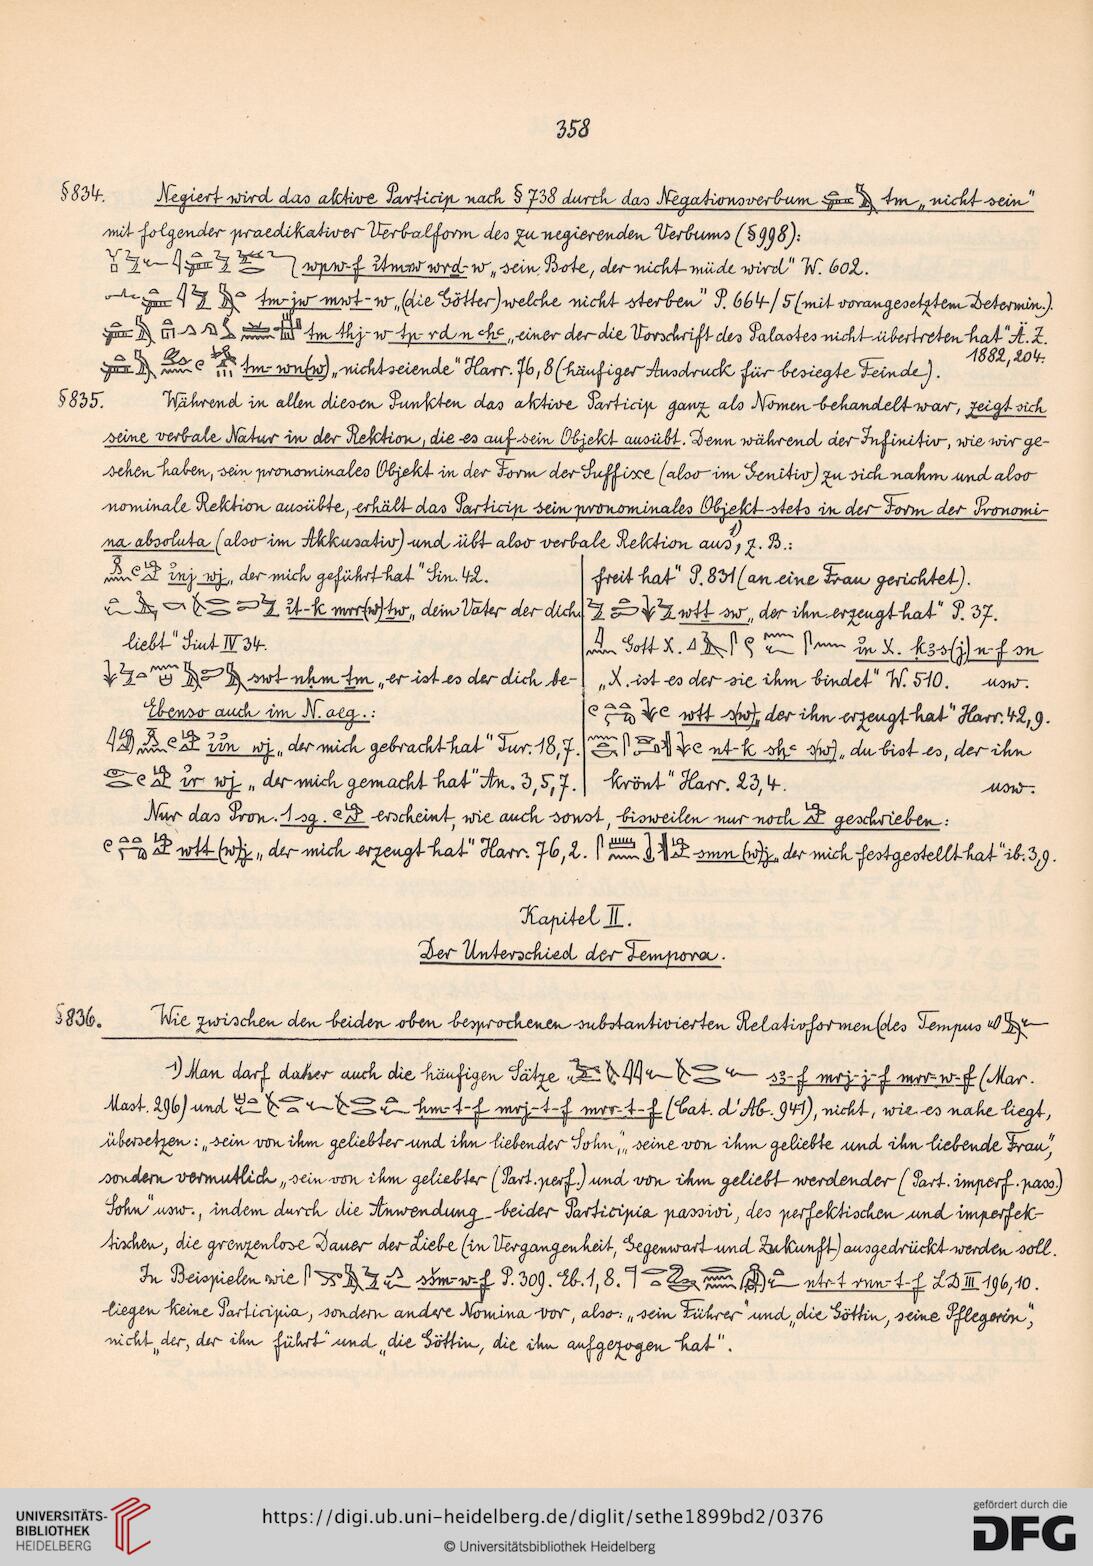 358
§834. Negiert wird das aktive Particip nach § 738 durch das Negationsverbum tm „nicht sein"
mit folgender praedikativer Verbalform des zu negierenden Verbums (§998):
wpw-f ỉtmw wrd-w „sein Bote, der nicht müde wird" W. 602.
tm-jw mwt-w „(die Götter) welche nicht sterben" P. 664/5 (mit vorangesetztem Determin.).
tm thj-w tp-rd n ꜥḥꜥ „einer der die Vorschrift des Palastes nicht übertreten hat" Ä. Z.
1882, 204.
tm-wn(w) „nichtseiende" Harr. 76, 8 (häufiger Ausdruck für besiegte Feinde).
§835. Während in allen diesen Punkten das aktive Particip ganz als Nomen behandelt war, zeigt sich
seine verbale Natur in der Rektion, die es auf sein Objekt ausübt. Denn während der Infinitiv, wie wir ge-
sehen haben, sein pronominales Objekt in der Form der Suffixe (also im Genitiv) zu sich nahm und also
nominale Rektion ausübte, erhält das Particip sein pronominales Objekt stets in der Form der Pronomi-
na absoluta (also im Akkusativ) und übt also verbale Rektion aus¹), z. B.:
ỉnj wj „der mich geführt hat" Sin. 42.
ỉt-k mrr(w) tw „dein Vater der dich
liebt" Siut IV 34.
swt nḥm tm „er ist es der dich be-
freit hat" P. 831 (an eine Frau gerichtet).
wtt sw „der ihn erzeugt hat" P. 37.
Gott X. ỉn X. k3s(j) n-f sn
„X. ist es der sie ihm bindet" W. 510. usw.
Ebenso auch im N. aeg.:
ỉỉn wj „der mich gebracht hat" Tur. 18, 7.
ỉr wj „der mich gemacht hat" An. 3, 5, 7.
wtt s(w) „der ihn erzeugt hat" Harr. 42, 9.
nt-k sḫꜥ s(w) „du bist es, der ihn
krönt" Harr. 23, 4. usw.
Nur das Pron. 1 sg. erscheint, wie auch sonst, bisweilen nur noch geschrieben:
wtt (w)j „der mich erzeugt hat" Harr. 76, 2. smn (w)j „der mich festgestellt hat" ib. 3, 9.
Kapitel II.
Der Unterschied der Tempora.
§836. Wie zwischen den beiden oben besprochenen substantivierten Relativformen (des Tempus
1) Man darf daher auch die häufigen Sätze s3-f mrj-j-f mrr-w-f (Mar.
Mast. 296) und ḥm-t-f mrj-t-f mrr-t-f (Cat. d'Ab. 941), nicht, wie es nahe liegt,
übersetzen: „sein von ihm geliebter und ihn liebender Sohn", „seine von ihm geliebte und ihn liebende Frau",
sondern vermutlich „sein von ihm geliebter (Part. perf.) und von ihm geliebt werdender (Part. imperf. pass.)
Sohn" usw., indem durch die Anwendung beider Participia passivi, des perfektischen und imperfek-
tischen, die grenzenlose Dauer der Liebe (in Vergangenheit, Gegenwart und Zukunft) ausgedrückt werden soll.
In Beispielen wie sšm-w-f P. 309. Eb. 1, 8. ntr-t rnn-t-f LD III 196, 10.
liegen keine Participia, sondern andere Nomina vor, also: „sein Führer" und „die Göttin, seine Pflegerin",
nicht „der, der ihn führt" und „die Göttin, die ihn aufgezogen hat".
UNIVERSITÄTS-
BIBLIOTHEK
HEIDELBERG
https://digi.ub.uni-heidelberg.de/diglit/sethe1899bd2/0376
© Universitätsbibliothek Heidelberg
gefördert durch die
DFG